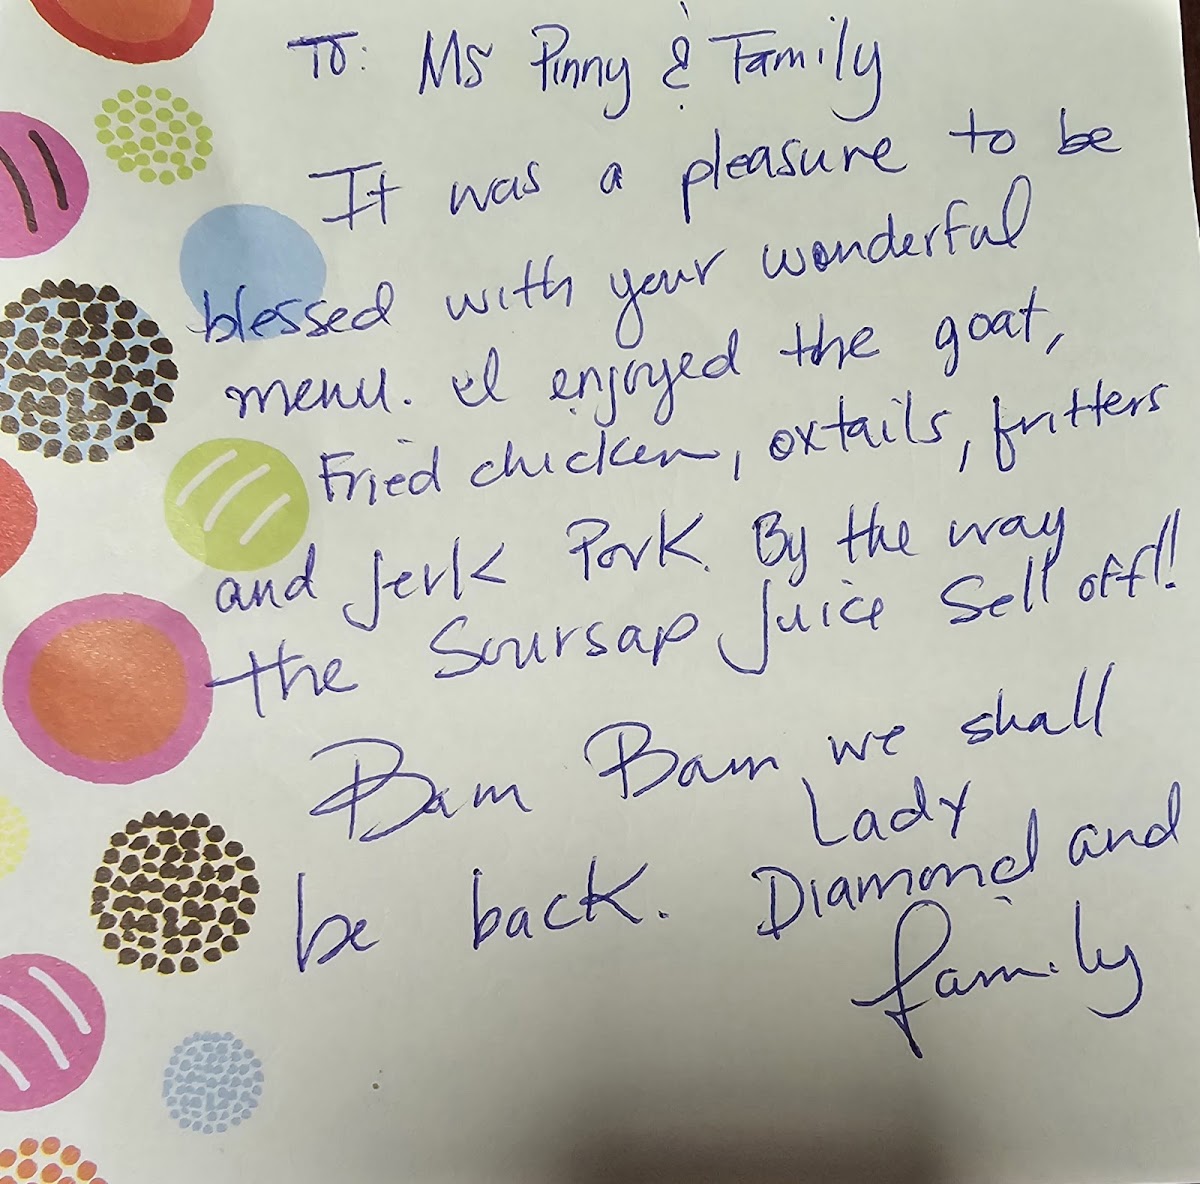 To: Ms Pinny & Family
It was a pleasure to be
blessed with your wonderful
menu. I enjoyed the goat,
Fried chicken, oxtails, fritters
and jerk Pork. By the way
the Soursap juice Sell off!!
Bam Bam we shall
be back. Lady
Diamond and
family